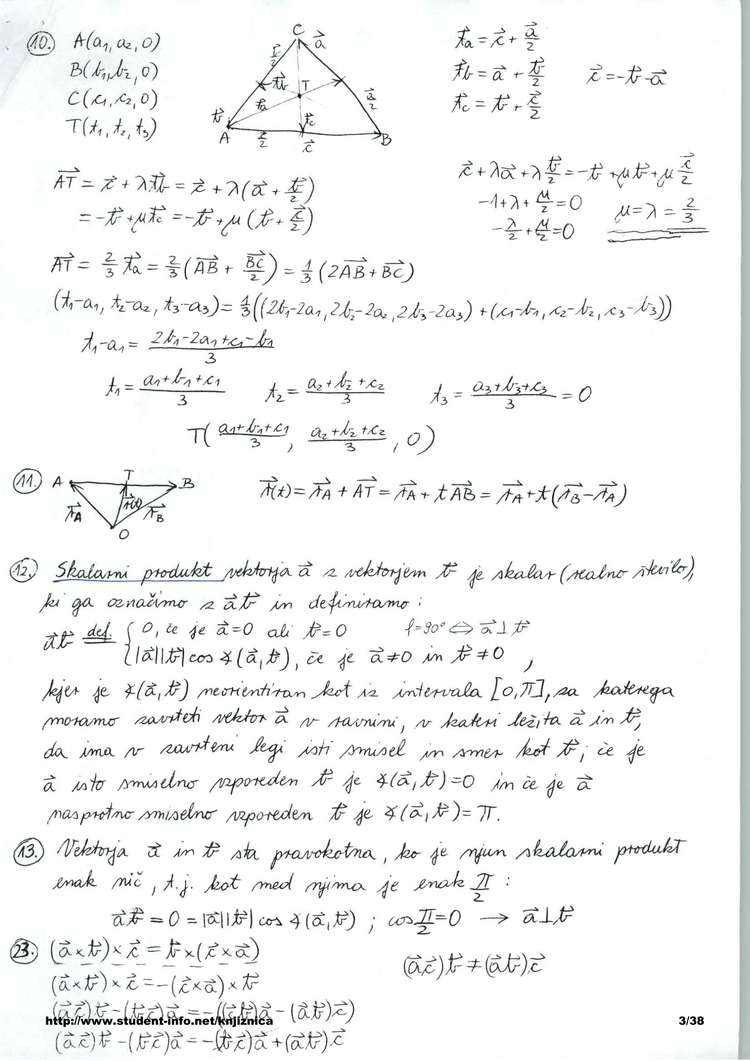 10. A(a₁, a₂, 0)
B(b₁, b₂, 0)
C(c₁, c₂, 0)
T(t₁, t₂, t₃)
C
a⃗
c⃗/2
t⃗b
T
t⃗a
a⃗/2
b⃗
t⃗c
A
c⃗/2
c⃗
B
t⃗a = c⃗ + a⃗/2
t⃗b = a⃗ + b⃗/2
c⃗ = -b⃗ - a⃗
t⃗c = b⃗ + c⃗/2
AT⃗ = c⃗ + λt⃗b = c⃗ + λ(a⃗ + b⃗/2)
= -b⃗ + μt⃗c = -b⃗ + μ(b⃗ + c⃗/2)
c⃗ + λa⃗ + λ b⃗/2 = -b⃗ + μb⃗ + μ c⃗/2
-1 + λ + μ/2 = 0
μ = λ = 2/3
-λ/2 + μ/2 = 0
AT⃗ = 2/3 t⃗a = 2/3 (AB⃗ + BC⃗/2) = 1/3 (2AB⃗ + BC⃗)
(t₁-a₁, t₂-a₂, t₃-a₃) = 1/3((2b₁-2a₁, 2b₂-2a₂, 2b₃-2a₃) + (c₁-b₁, c₂-b₂, c₃-b₃))
t₁-a₁ = (2b₁-2a₁+c₁-b₁)/3
t₁ = (a₁+b₁+c₁)/3 t₂ = (a₂+b₂+c₂)/3 t₃ = (a₃+b₃+c₃)/3 = 0
T((a₁+b₁+c₁)/3, (a₂+b₂+c₂)/3, 0)
11. A T B
r⃗A r⃗(t) r⃗B
O
r⃗(t) = r⃗A + AT⃗ = r⃗A + tAB⃗ = r⃗A + t(r⃗B - r⃗A)
12. Skalarni produkt vektorja a⃗ z vektorjem b⃗ je skalar (realno število),
ki ga označimo z a⃗b⃗ in definiramo:
a⃗b⃗ def. { 0, če je a⃗=0 ali b⃗=0 f=90° ⇔ a⃗⊥b⃗
|a⃗||b⃗| cos ∢(a⃗, b⃗), če je a⃗≠0 in b⃗≠0 ,
kjer je ∢(a⃗, b⃗) neorientiran kot iz intervala [0, π], za katerega
moramo zavrteti vektor a⃗ v ravnini, v kateri ležita a⃗ in b⃗,
da ima v zavrteni legi isti smisel in smer kot b⃗; če je
a⃗ isto smiselno vzporeden b⃗ je ∢(a⃗, b⃗) = 0 in če je a⃗
nasprotno smiselno vzporeden b⃗ je ∢(a⃗, b⃗) = π.
13. Vektorja a⃗ in b⃗ sta pravokotna, ko je njun skalarni produkt
enak nič, t.j. kot med njima je enak π/2 :
a⃗b⃗ = 0 = |a⃗||b⃗| cos ∢(a⃗, b⃗) ; cos π/2 = 0 → a⃗⊥b⃗
23. (a⃗×b⃗)×c⃗ = b⃗×(c⃗×a⃗) (a⃗c⃗)b⃗ ≠ (a⃗b⃗)c⃗
(a⃗×b⃗)×c⃗ = -(c⃗×a⃗)×b⃗
(a⃗c⃗)b⃗ - (b⃗c⃗)a⃗ = -((c⃗b⃗)a⃗ - (a⃗b⃗)c⃗)
http://www.student-info.net/knjiznica 3/38
(a⃗c⃗)b⃗ - (b⃗c⃗)a⃗ = -(b⃗c⃗)a⃗ + (a⃗b⃗)c⃗